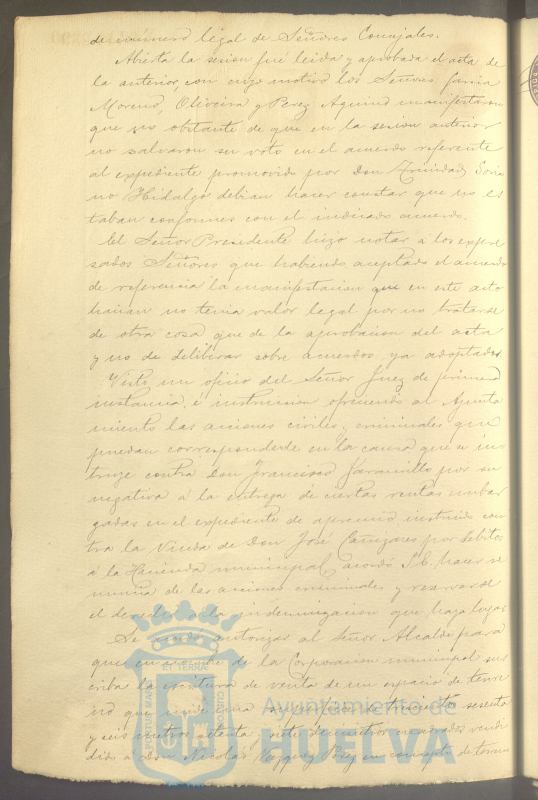 de número legal de Señores Concejales.
Abierta la sesion fué leida y aprobada el acta de
la anterior, con cuyo motivo los Señores Garcia
Moreno, Oliveira y Perez Aquino manifestaron
que no obstante de que en la sesion anterior
no salvaron su voto en el acuerdo referente
al expediente promovido por Don Trinidad Soria
no Hidalgo debian hacer constar que no es
taban conformes con el indicado acuerdo.
El Señor Presidente hizo notar á los expre
sados Señores que habiendo aceptado el acuerdo
de referencia la manifestacion que en este acto
hacian no tenia valor legal por no tratarse
de otra cosa que de la aprobacion del acta
y no de deliberar sobre acuerdos ya adoptados
Visto un oficio del Señor Juez de primera
instancia é instruccion ofreciendo al Ayunta
miento las acciones civiles y criminales que
puedan corresponderle en la causa que se ins
truye contra Don Francisco Jaramillo por su
negativa á la entrega de ciertas rentas embar
gadas en el expediente de apremio instruido con
tra la Viuda de Don José Cañizares por debitos
á la Hacienda municipal, acordó S.E. hacer re
nuncia de las acciones criminales y reservarse
el derecho á la indemnizacion que haya lugar
Se acordó autorizar al Señor Alcalde para
que en nombre de la Corporacion municipal sus
criba la escritura de venta de un espacio de terre
no que mide una superficie de trescientos sesenta
y seis metros setenta y siete decimetros cuadrados vendi
dido á Don Nicolás Vazquez Perez en concepto de terreno
ET TERRAE
PORTUS MARIS
CUSTODIA
Ayuntamiento de
HUELVA